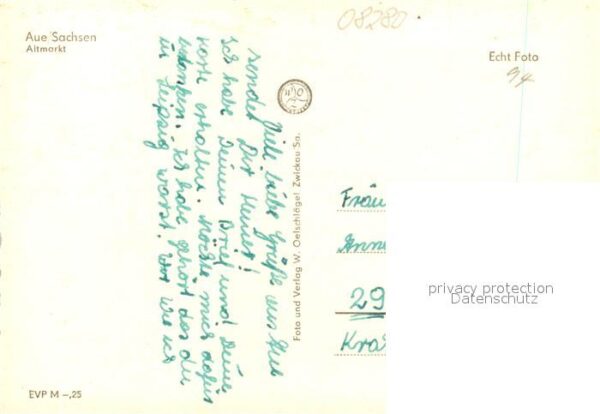 08280
Aue Sachsen
Altmarkt
Echt Foto
94
Viele liebe Grüße aus Aue
sendet Dir Heiner!
Ich habe Deinen Brief und Deine
Karte erhalten. Möchte mich dafür
bedanken. Ich habe gehört das du
in Leipzig warst. War wie ich
Foto und Verlag W. Oelschlägel Zwickau Sa.
Fräu
Anne
29
Kra
privacy protection
Datenschutz
EVP M –,25